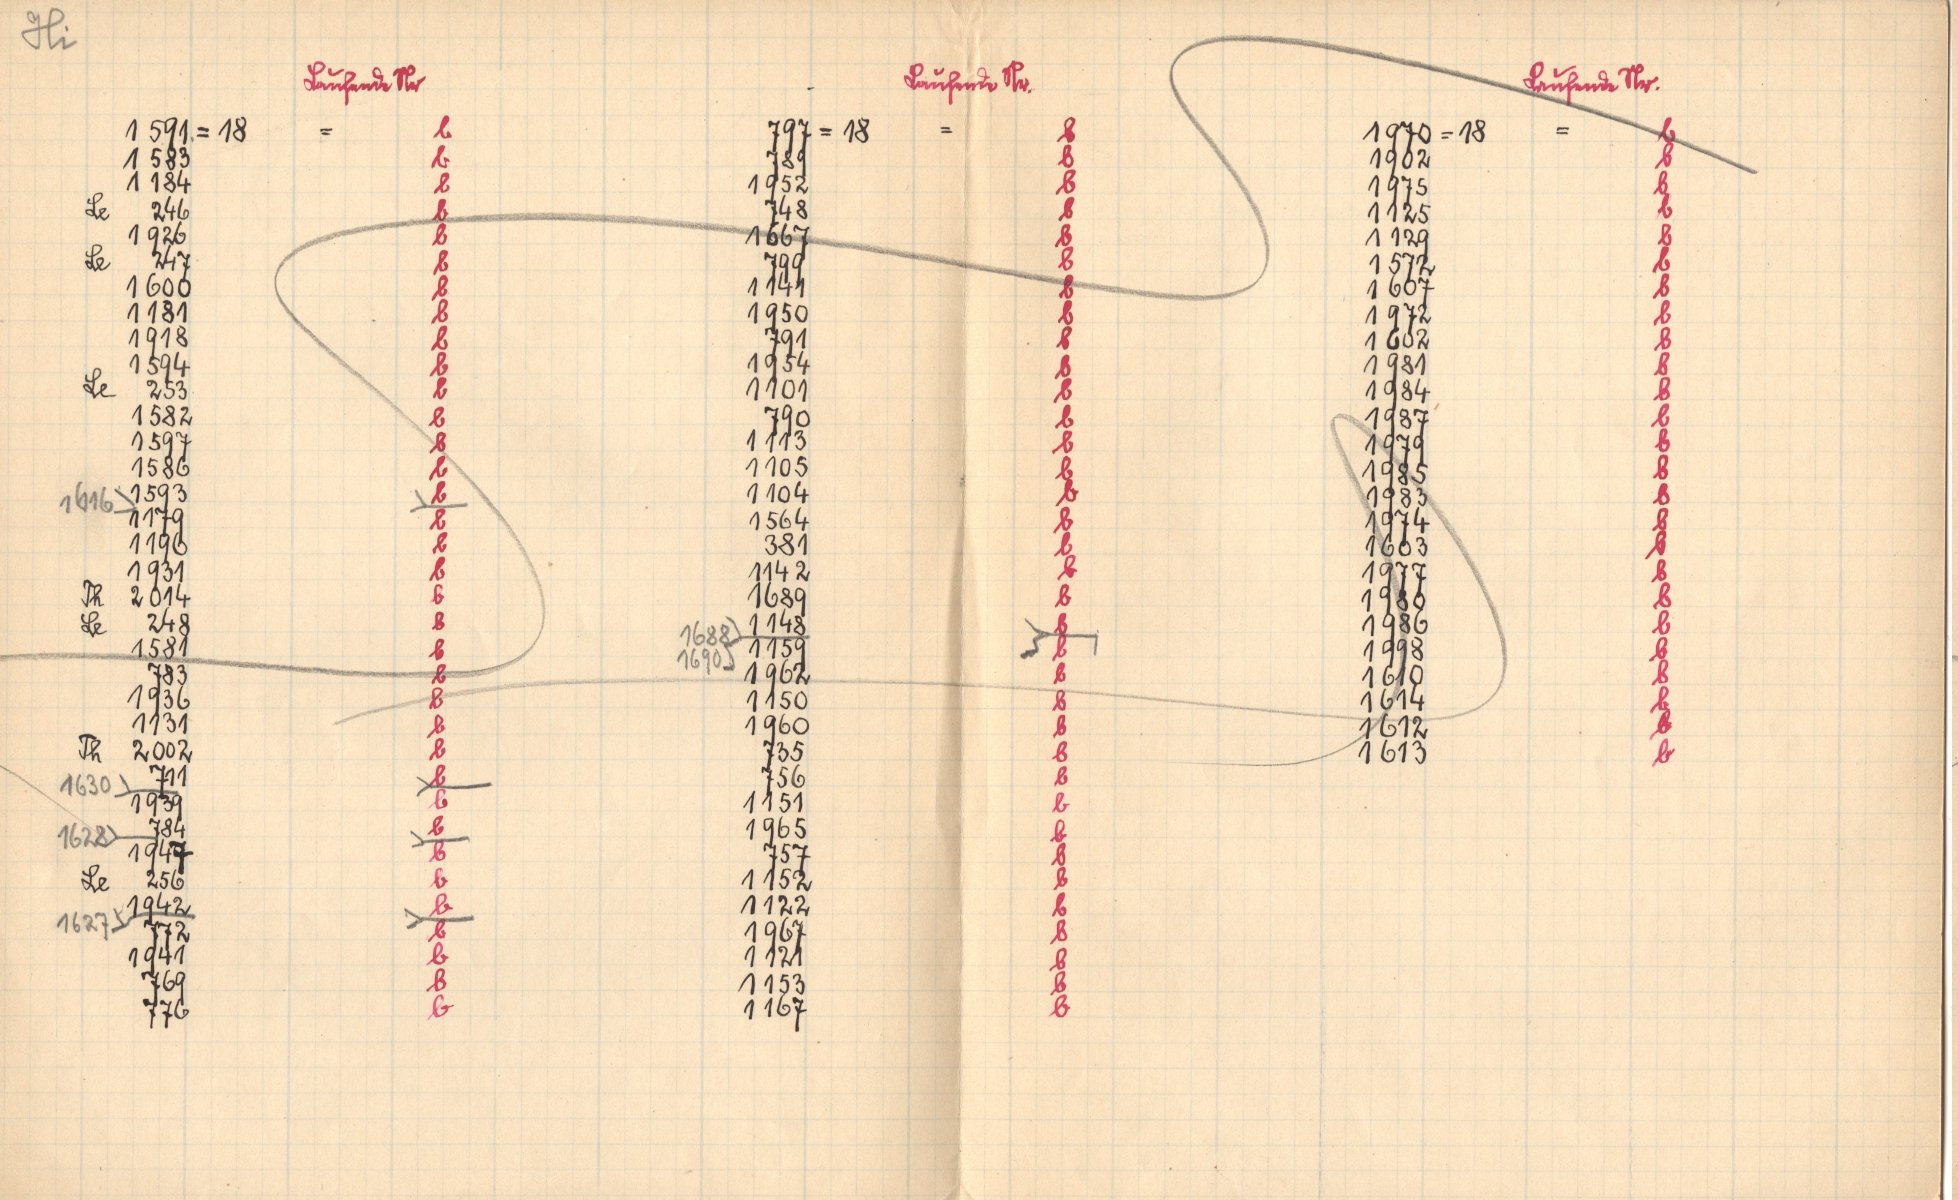 Hi
Laufende Nr
1591 = 18 = b
1583 b
1184 b
Le 246 b
1926 b
Le 247 b
1600 b
1181 b
1918 b
1594 b
Le 253 b
1582 b
1597 b
1586 b
1593 b
1616
1179 b
1190 b
1931 b
Th 2014 b
Le 248 b
1581 b
783 b
1936 b
1131 b
Th 2002 b
711 b
1630
1939 b
784 b
1628
1947 b
Le 256 b
1942 b
1627
772 b
1941 b
769 b
776 b
Laufende Nr.
797 = 18 = b
789 b
1952 b
748 b
1667 b
799 b
1141 b
1950 b
791 b
1954 b
1101 b
790 b
1113 b
1105 b
1104 b
1564 b
381 b
1142 b
1689 b
1148 b
1688
1690
1159 b
1962 b
1150 b
1960 b
735 b
756 b
1151 b
1965 b
757 b
1152 b
1122 b
1967 b
1121 b
1153 b
1167 b
Laufende Nr.
1970 = 18 = b
1902 b
1975 b
1125 b
1129 b
1572 b
1607 b
1972 b
1602 b
1981 b
1984 b
1987 b
1979 b
1985 b
1983 b
1974 b
1603 b
1977 b
1980 b
1986 b
1998 b
1610 b
1614 b
1612 b
1613 b